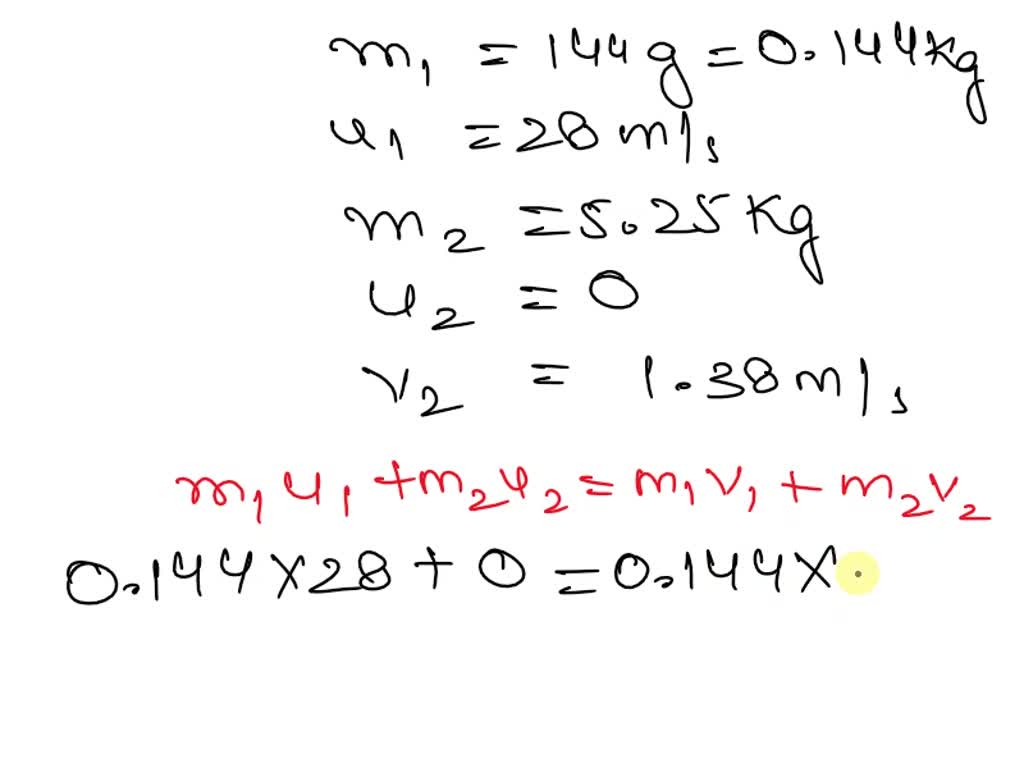 m₁ = 144 g = 0.144 Kg
u₁ = 28 m/s
m₂ = 5.25 Kg
u₂ = 0
v₂ = 1.38 m/s
m₁u₁ + m₂u₂ = m₁v₁ + m₂v₂
0.144 × 28 + 0 = 0.144 ×